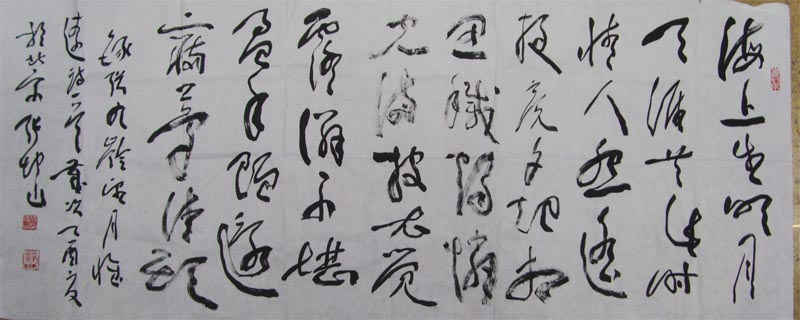 海上生明月
天涯共此时
情人怨遥
夜竟夕起相
思灭烛怜
光满披衣觉
露滋不堪
盈手赠还
寝梦佳期
录张九龄望月怀
远诗一首岁次丁酉夏
于北京张山